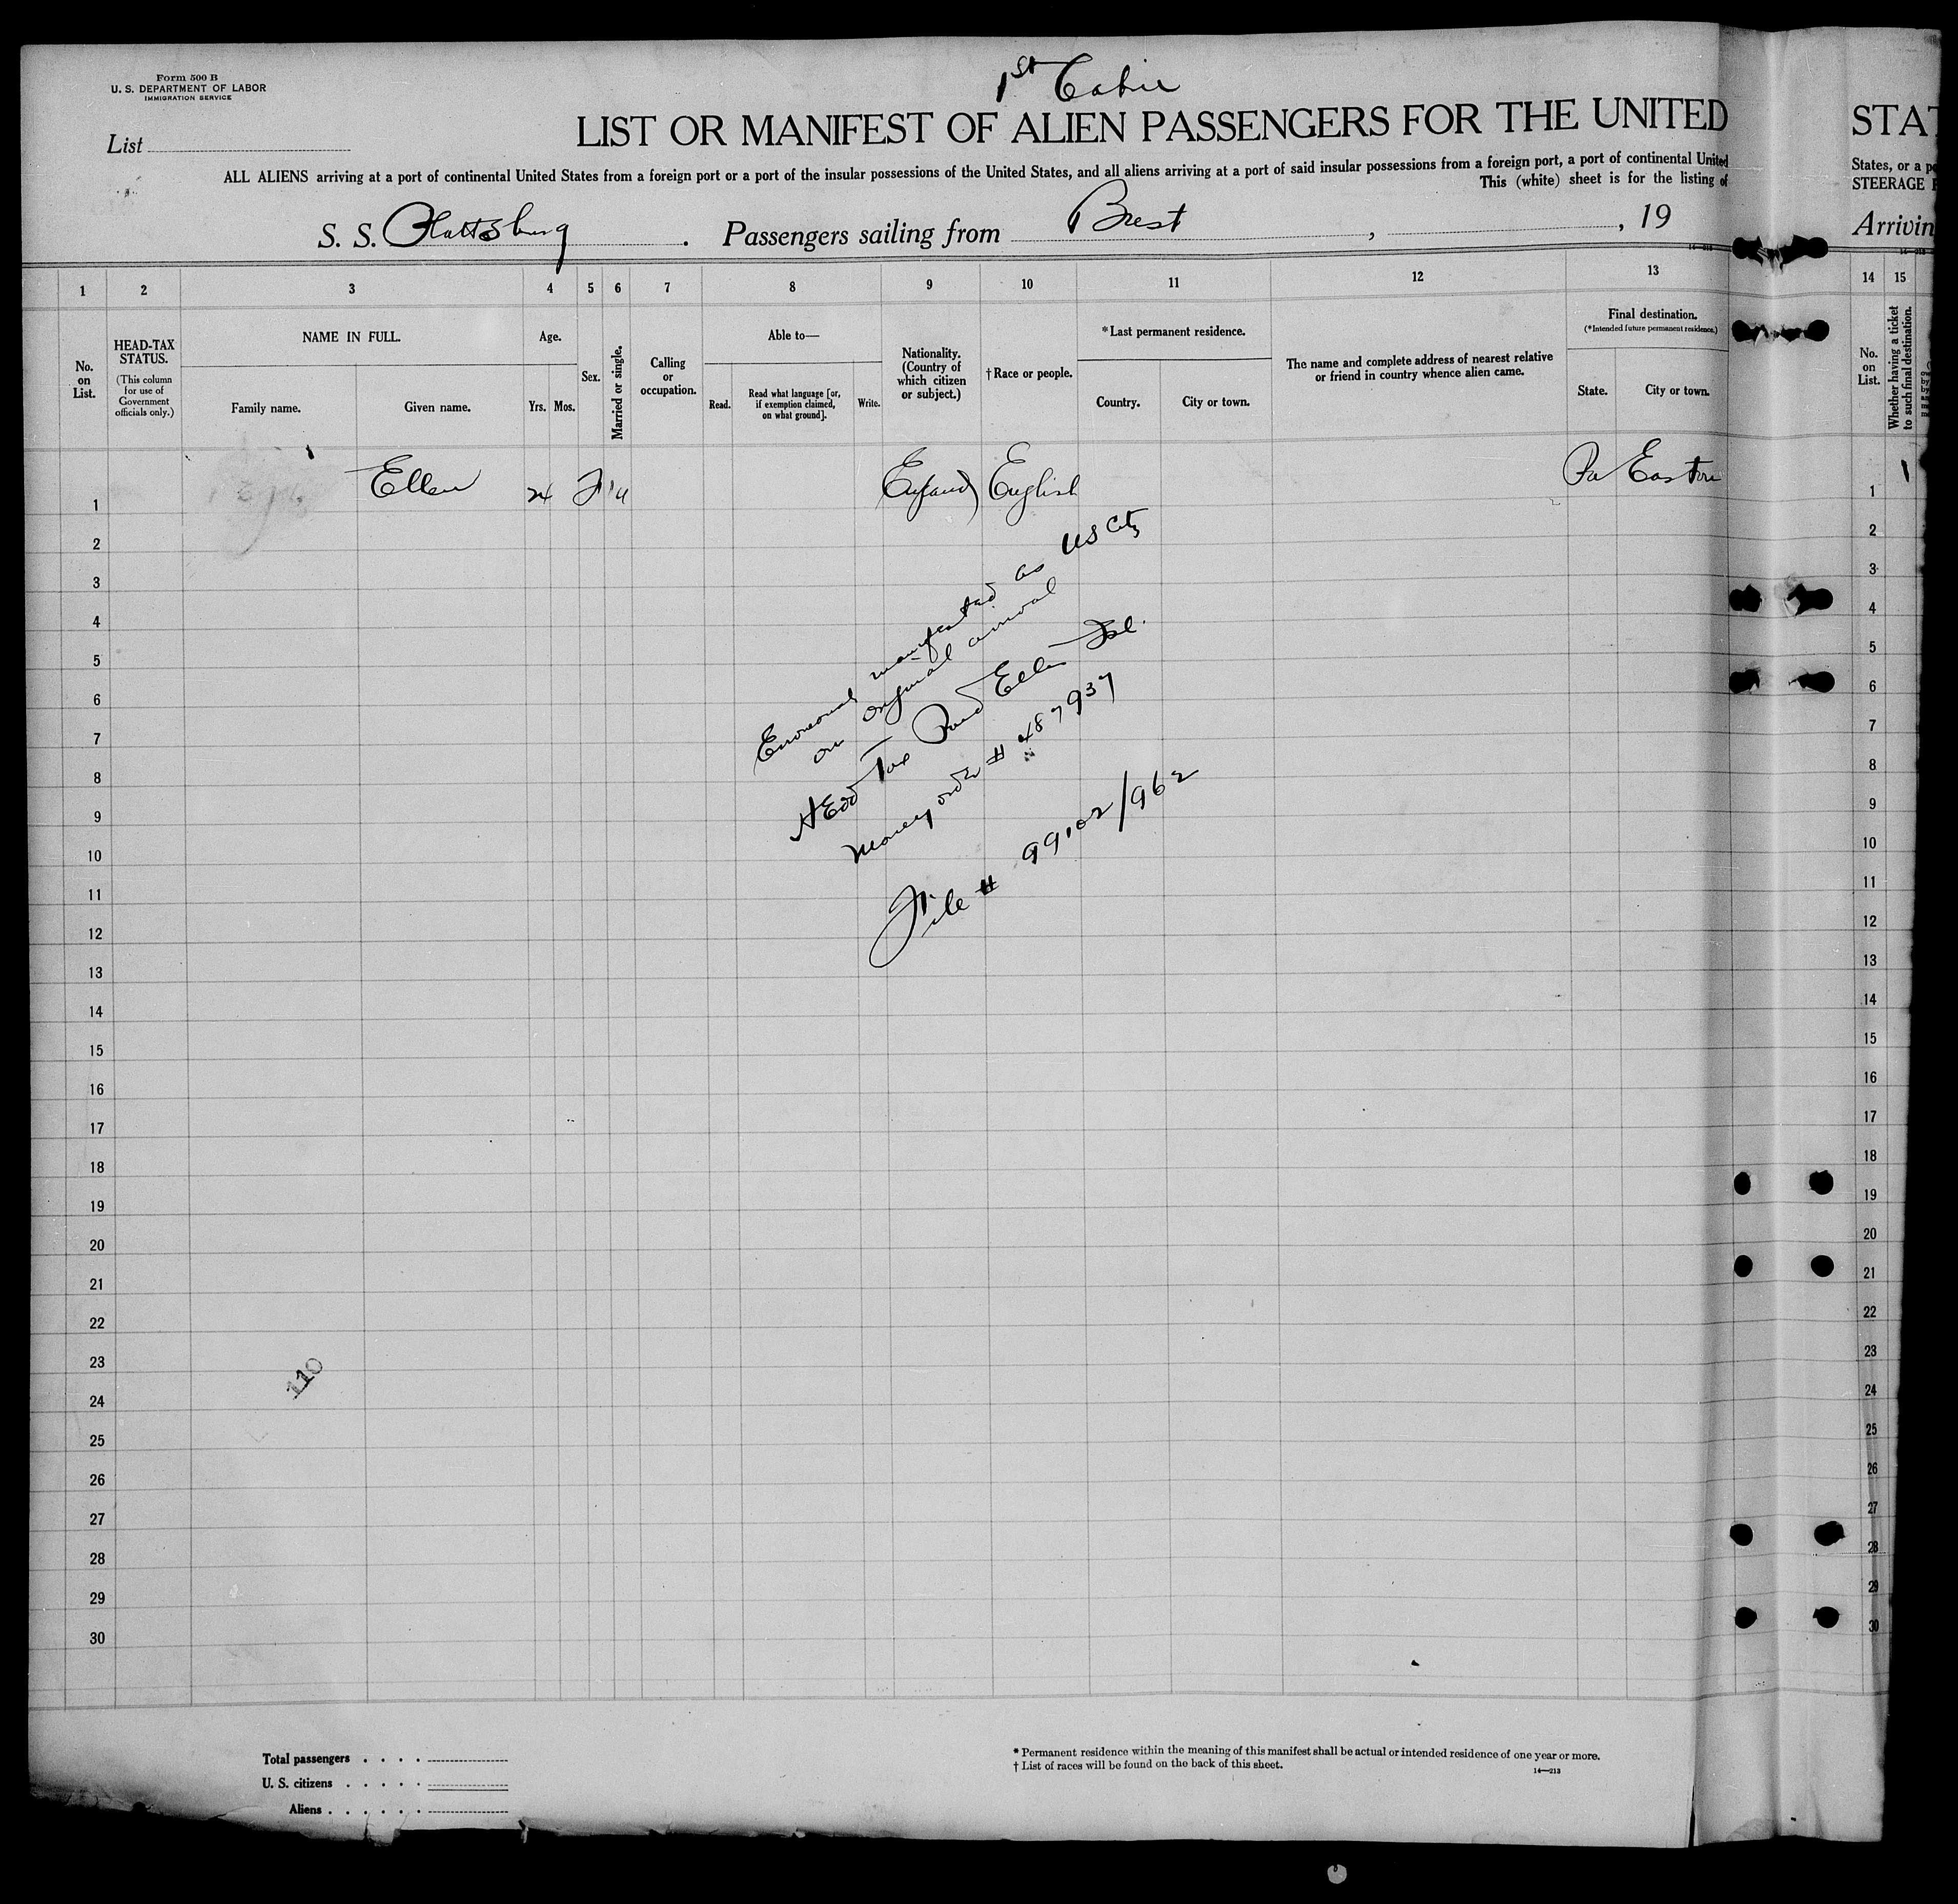 1st Cabin
Form 500 B
U. S. DEPARTMENT OF LABOR
IMMIGRATION SERVICE
List
LIST OR MANIFEST OF ALIEN PASSENGERS FOR THE UNITED
STAT
ALL ALIENS arriving at a port of continental United States from a foreign port or a port of the insular possessions of the United States, and all aliens arriving at a port of said insular possessions from a foreign port, a port of continental United
States, or a
This (white) sheet is for the listing of
STEERAGE
S. S. Plattsburg . Passengers sailing from Brest , , 19
Arrivin
1 2 3 4 5 6 7 8 9 10 11 12 13 14 15
No. on List.
HEAD-TAX STATUS.
(This column for use of Government officials only.)
NAME IN FULL.
Family name. Given name.
Age.
Yrs. Mos.
Sex.
Married or single.
Calling or occupation.
Able to—
Read. Read what language [or, if exemption claimed, on what ground]. Write.
Nationality. (Country of which citizen or subject.)
†Race or people.
*Last permanent residence.
Country. City or town.
The name and complete address of nearest relative or friend in country whence alien came.
Final destination.
(*Intended future permanent residence.)
State. City or town.
No. on List.
Whether having a ticket to such final destination.
1 Ellen 24 F England English Pa Easton 1
2 2
3 3
4 4
5 5
6 6
7 7
8 8
9 9
10 10
11 11
12 12
13 13
14 14
15 15
16 16
17 17
18 18
19 19
20 20
21 21
22 22
23 23
24 24
25 25
26 26
27 27
28 28
29 29
30 30
manifested as US
on original arrival
Head Tax Paid Ellis Isl.
Money order # 487937
File # 99102/962
110
Total passengers . . . .
U. S. citizens . . . . .
Aliens . . . . . .
* Permanent residence within the meaning of this manifest shall be actual or intended residence of one year or more.
† List of races will be found on the back of this sheet.
14—213